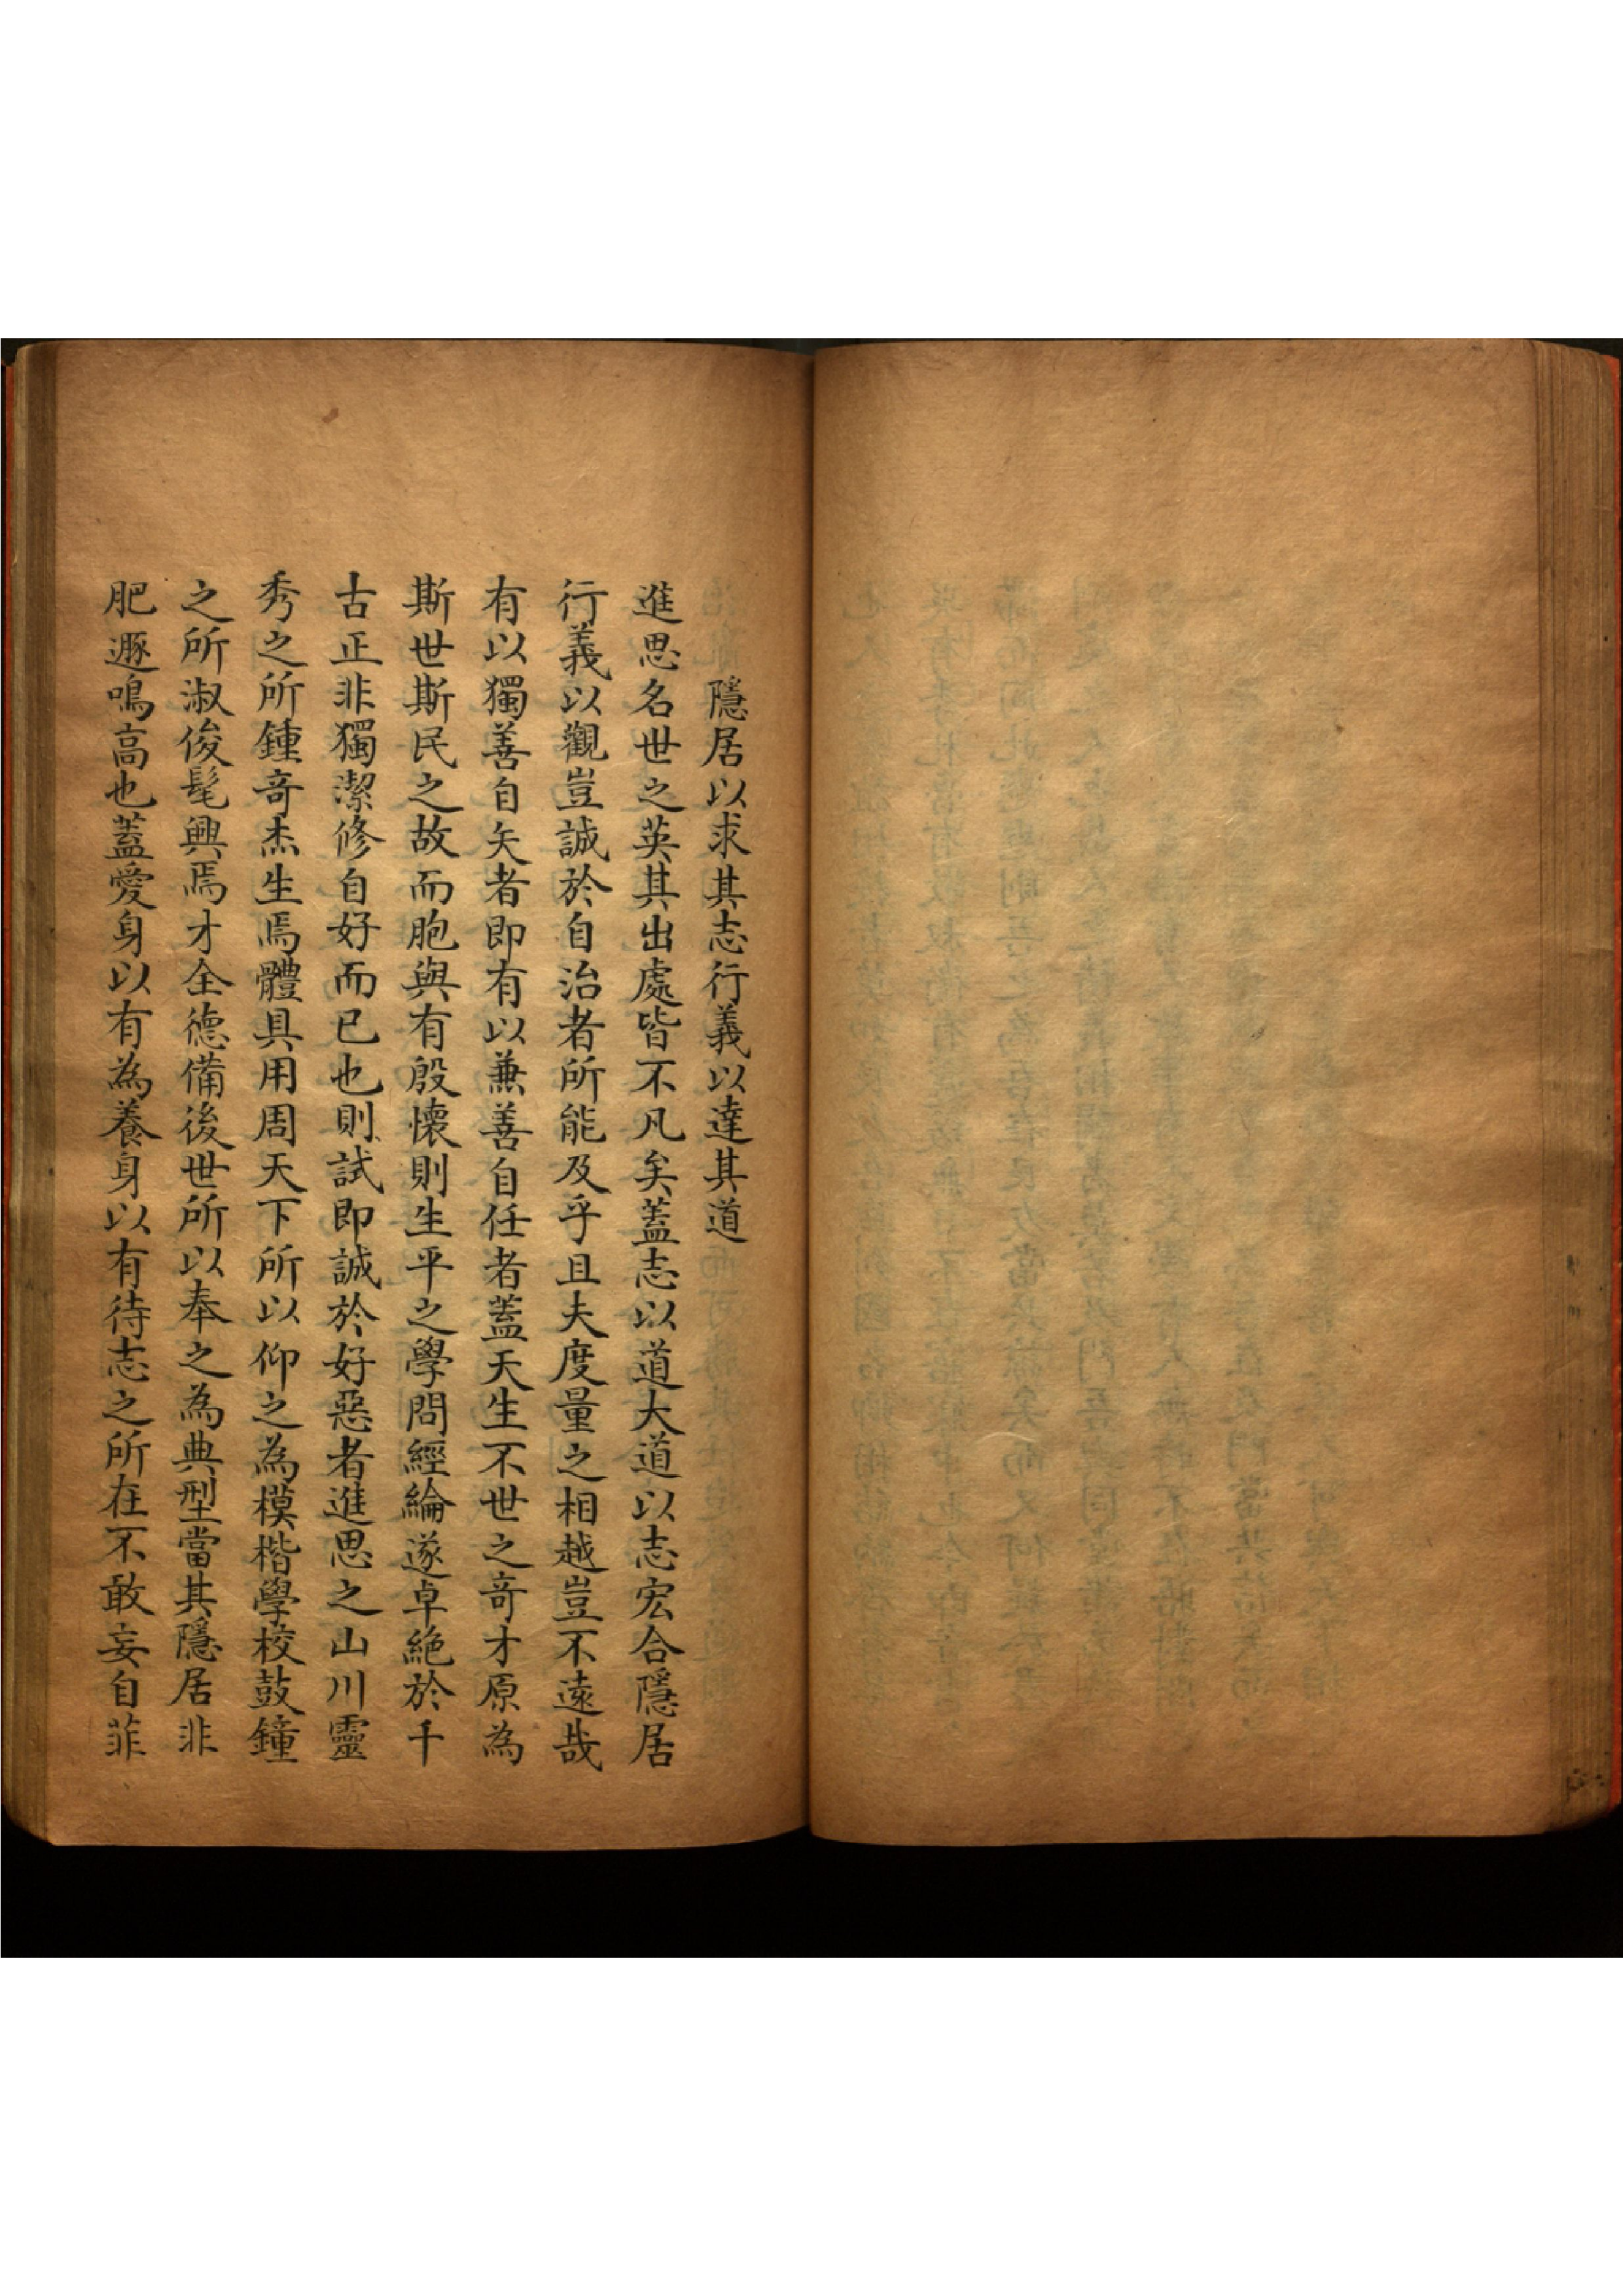 隱居以求其志行義以達其道
進思名世之英其出處皆不凡矣蓋志以道大道以志宏合隱居
行義以觀豈誠於自治者所能及乎且夫度量之相越豈不遠哉
有以獨善自矢者即有以兼善自任者蓋天生不世之奇才原為
斯世斯民之故而胞與有殷懷則生平之學問經綸遂卓絶於千
古正非獨潔修自好而已也則試即誠於好惡者進思之山川靈
秀之所鍾奇杰生焉體具用周天下所以仰之為模楷學校鼓鐘
之所淑俊髦興焉才全德備後世所以奉之為典型當其隱居非
肥遯鳴高也蓋愛身以有為養身以有待志之所在不敢妄自菲